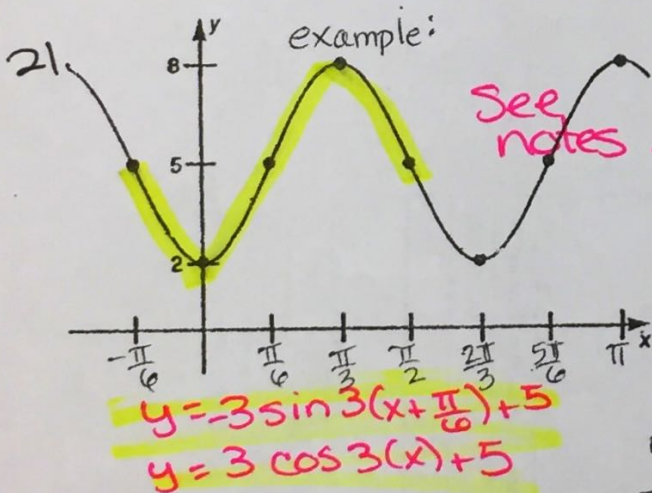 example:
21.
y
8
See
notes
5
2
-π/6 π/6 π/3 π/2 2π/3 5π/6 π x
y=-3 sin 3(x+π/6)+5
y = 3 cos 3(x)+5